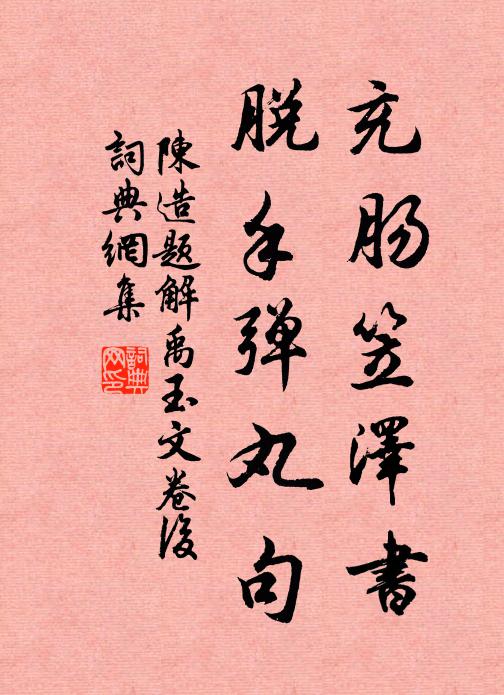 充肠笠澤書
脱手弹丸句
陳造题解禹玉文卷後
詞典網集
詞典
网印